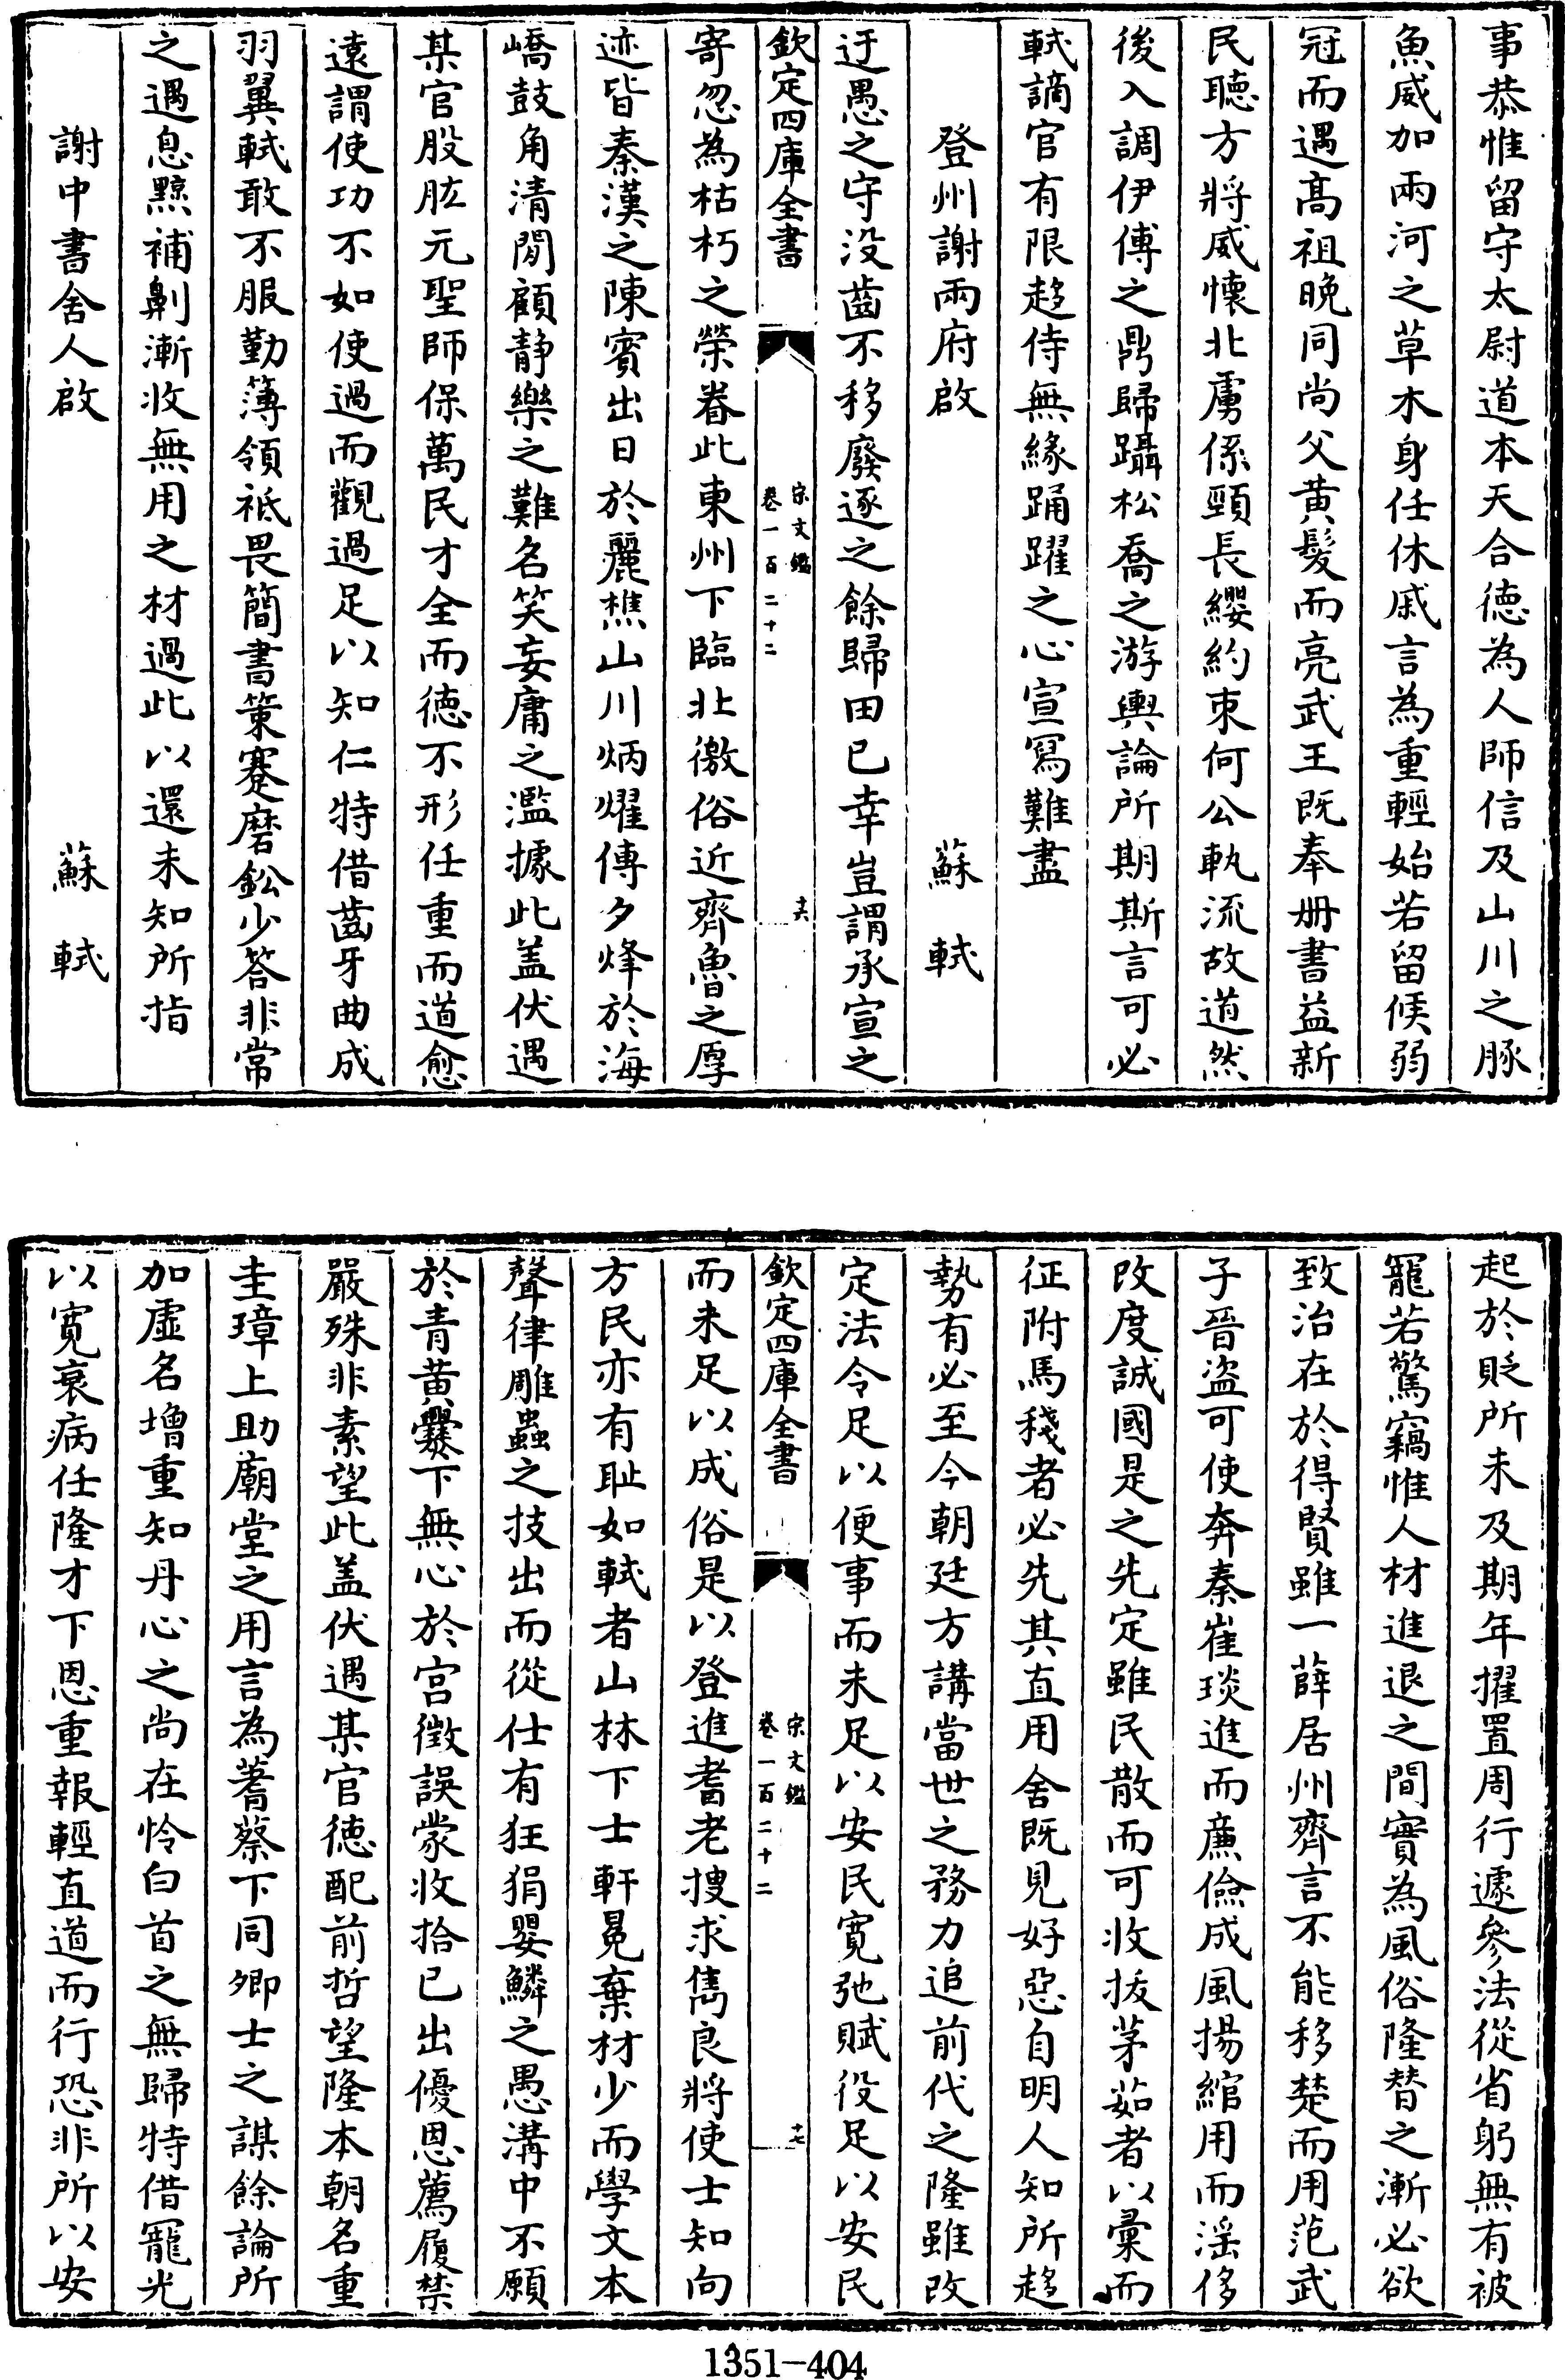 事恭惟留守太尉道本天合德為人師信及山川之豚
魚威加兩河之草木身任休戚言為重輕始若留侯弱
冠而遇高祖晚同尚父黃髮而亮武王既奉册書益新
民聽方將威懷北虜係頸長纓約束河公軌流故道然
後入調伊傅之鼎歸躡松喬之游輿論所期斯言可必
軾謫官有限趍侍無緣踊躍之心宣寫難盡
登州謝兩府啟 蘇軾
迂愚之守没齒不移廢逐之餘歸田已幸豈謂承宣之
欽定四庫全書 宋文鑑 卷一百二十二 十六
寄忽為枯朽之榮眷此東州下臨北徼俗近齊魯之厚
迹皆秦漢之陳賓出日於麗樵山川炳燿傳夕烽於海
嶠鼓角清閒顧静樂之難名笑妄庸之濫據此盖伏遇
某官股肱元聖師保萬民才全而德不形任重而道愈
遠謂使功不如使過而觀過足以知仁特借齒牙曲成
羽翼軾敢不服勤簿領祗畏簡書策蹇磨鈆少答非常
之遇息黥補劓漸收無用之材過此以還未知所指
謝中書舍人啟 蘇軾
起於貶所未及期年擢置周行遽參法從省躬無有被
寵若驚竊惟人材進退之間實為風俗隆替之漸必欲
致治在於得賢雖一薛居州齊言不能移楚而用范武
子晉盗可使奔秦崔琰進而亷儉成風揚綰用而滛侈
改度誠國是之先定雖民散而可收拔茅茹者以彙而
征附馬棧者必先其直用舍既見好惡自明人知所趍
勢有必至今朝廷方講當世之務力追前代之隆雖改
定法令足以便事而未足以安民寛弛賦役足以安民
欽定四庫全書 宋文鑑 卷一百二十二 十七
而未足以成俗是以登進耆老搜求雋良將使士知向
方民亦有耻如軾者山林下士軒冕棄材少而學文本
聲律雕蟲之技出而從仕有狂狷嬰鱗之愚溝中不願
於青黃爨下無心於宫徵誤蒙收拾已出優恩薦履禁
嚴殊非素望此盖伏遇某官德配前哲望隆本朝名重
圭璋上助廟堂之用言為蓍蔡下同卿士之謀餘論所
加虚名増重知丹心之尚在怜白首之無歸特借寵光
以寛衰病任隆才下恩重報輕直道而行恐非所以安
1351-404